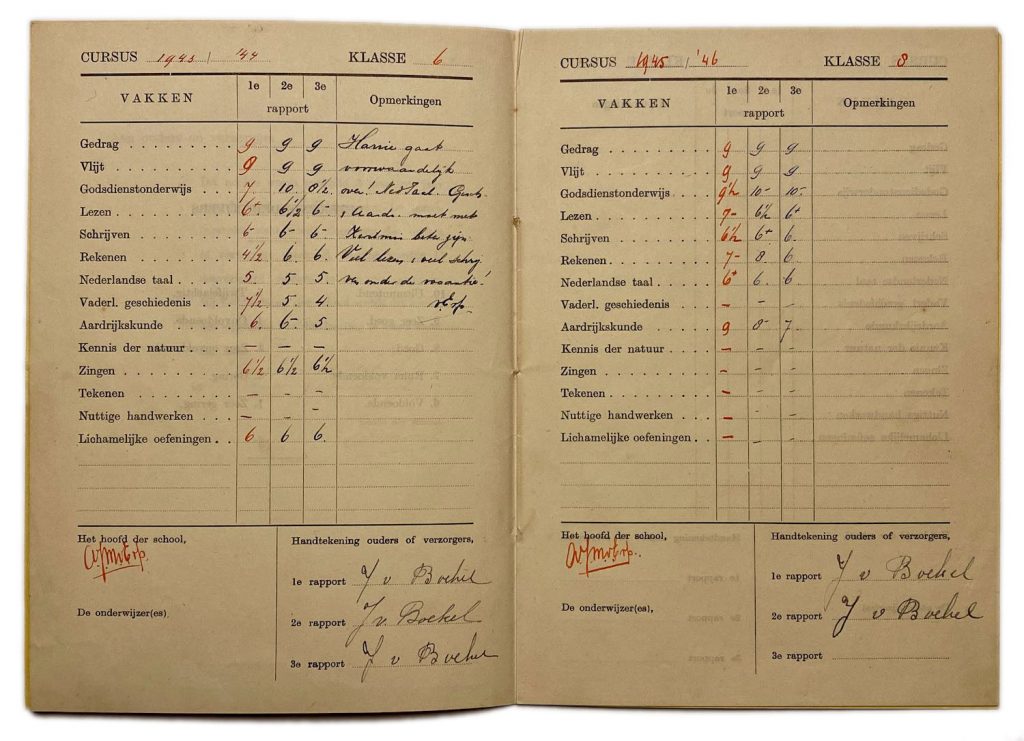 CURSUS 1943 / '44 KLASSE 6
VAKKEN 1e 2e 3e Opmerkingen
rapport
Gedrag 9 9 9 Harrie gaat
Vlijt 9 9 9 voorwaardelijk
Godsdienstonderwijs 7 10 8½ over! Ned Taal. Gesch.
Lezen 6+ 6½ 6- & Aardr. moet met
Schrijven 6- 6- 6- Kerstmis beter zijn
Rekenen 4½ 6 6 Veel lezen & veel schrij
Nederlandse taal 5 5 5 ven onder de vacantie!
Vaderl. geschiedenis 7½ 5 4 v. Erp.
Aardrijkskunde 6 6- 5
Kennis der natuur - - -
Zingen 6½ 6½ 6½
Tekenen - - -
Nuttige handwerken - - -
Lichamelijke oefeningen 6 6 6
Het hoofd der school,
Handtekening ouders of verzorgers,
1e rapport J v Boekel
De onderwijzer(es)
2e rapport J v. Boekel
3e rapport J v Boekel
CURSUS 1945 / '46 KLASSE 8
VAKKEN 1e 2e 3e Opmerkingen
rapport
Gedrag 9 9 9
Vlijt 9 9 9
Godsdienstonderwijs 9½ 10- 10-
Lezen 7- 6½ 6+
Schrijven 6½ 6+ 6
Rekenen 7- 8 6
Nederlandse taal 6+ 6 6
Vaderl. geschiedenis - - -
Aardrijkskunde 9 8- 7
Kennis der natuur - - -
Zingen - - -
Tekenen - - -
Nuttige handwerken - - -
Lichamelijke oefeningen - - -
Het hoofd der school,
Handtekening ouders of verzorgers,
1e rapport J v Boekel
De onderwijzer(es),
2e rapport J v Boekel
3e rapport